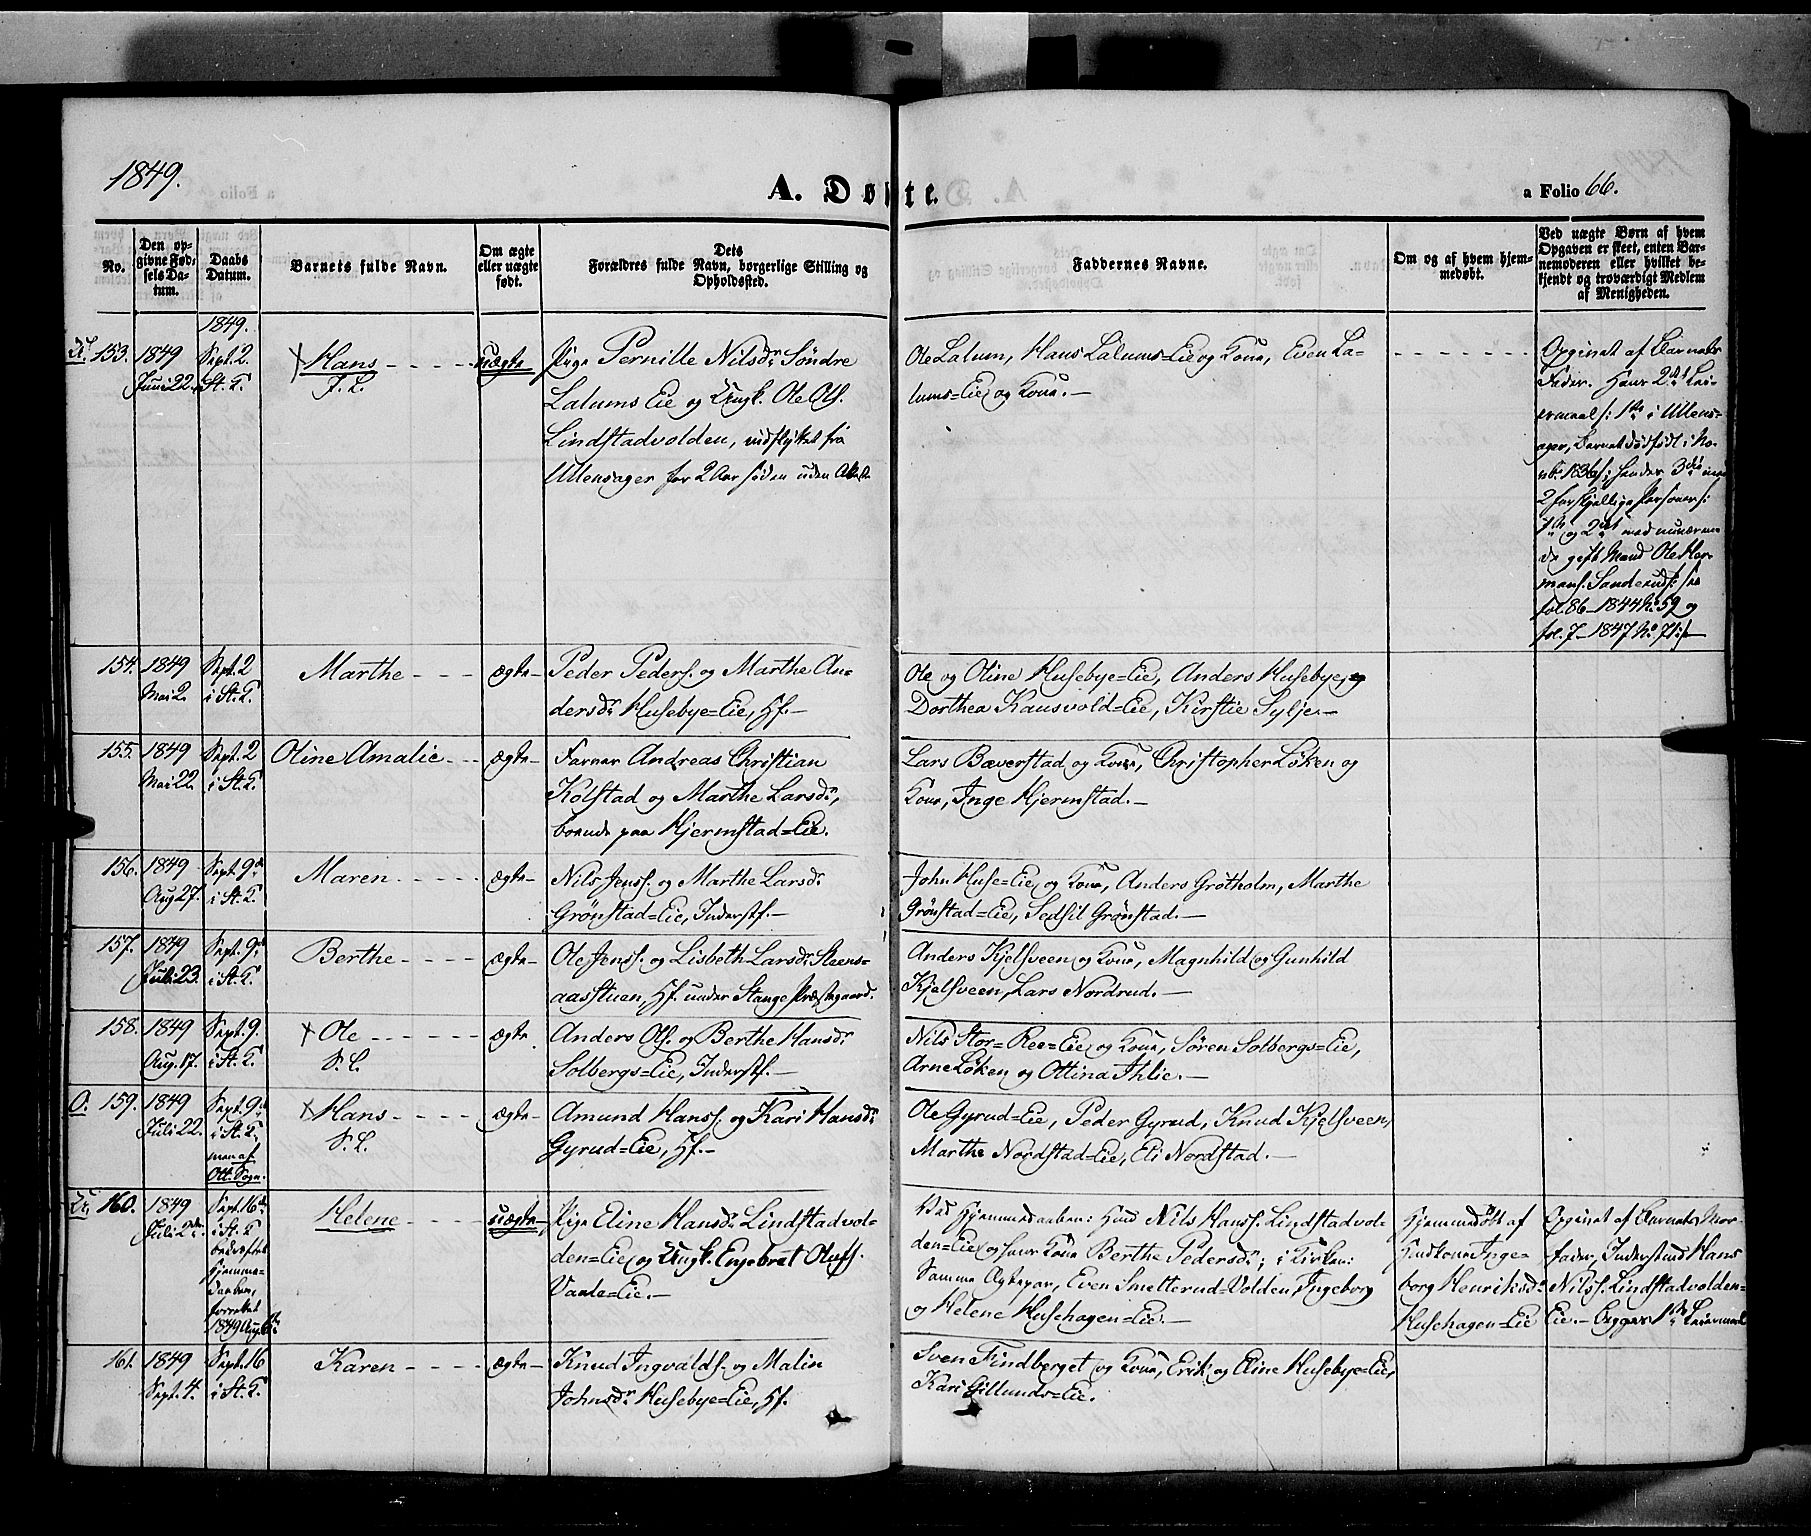 1849.
A. Døbte.
a Folio 66.
No.
Den opgivne Fødsels Datum.
Daabs Datum.
Barnets fulde Navn.
Om ægte eller uægte født.
Dets Forældres fulde Navn, borgerlige Stilling og Opholdssted.
Faddernes Navne.
Om og af hvem hjemmedøbt.
Ved uægte Børn af hvem Opgaven er skeet, enten Barnemoderen eller hvilket bekjendt og troværdigt Medlem af Menigheden.
1849.
153. 1849 Sept. 2. Hans - - - - uægte Pige Pernille Nilsdr Søndre
Juni 22. St. K. F. L.
Lalums Eie og Ungk. Ole Ols.
Lindstadvolden, indflyttet fra
Ullensager for 2 Aar siden uden Attest
Ole Lalum, Hans Lalums=Eie og Kone, Even La-
lums=Eie og Kone. —
Opgivet af Barnets
Fader. Hans 2det Lei-
ermaal /: 1ste i Ullens-
ager, Barnet dødfødt i No-
vbr 1836 /: hendes 3die med
2 forskjellige Personer /:
1ste og 2det med nuværen-
de gift Mand Ole Her-
mans. Sanderud /: see
fol. 86 - 1844 No 59 og
fol. 7 - 1847 No 71 :/ —
154. 1849 Sept. 2 Marthe - - - ægte Peder Peders. og Marthe An-
Mai 2. i St. K. dersdr Husebye=Eie, Hf. —
Ole og Oline Husebye=Eie, Anders Husebye, og
Dorthea Kausvold=Eie, Kirstie Sylje. —
155. 1849 Sept. 2 Oline Amalie - - ægte Farver Andreas Christian
Mai 22. i St. K. Kolstad og Marthe Larsdr,
boende paa Hjermstad=Eie.
Lars Bæverstad og Kone, Christopher Løken og
Kone, Inge Hjermstad. —
156. 1849 Sept. 9de Maren - - - - - ægte Nils Jenss. og Marthe Larsdr
Aug 27. i St. K. Grønstad=Eie, Inderstf. —
John Huse=Eie og Kone, Anders Grøtholm, Marthe
Grønstad=Eie, Sedsil Grønstad. —
157. 1849 Sept. 9de Berthe - - - - ægte Ole Jenss. og Lisbeth Larsdr Steens-
Juli 23. i St. K. aasstuen, Hf. under Stange Præstegaard.
Anders Kjelsveen og Kone, Magnhild og Gunhild
Kjelsveen, Lars Nordrud. —
158. 1849 Sept. 9. Ole - - - - - ægte Anders Ols. og Berthe Hansdr
Aug. 17. i St. K. S. L. Solbergs=Eie, Inderstf. —
Nils Stor=Ree=Eie og Kone, Søren Solbergs=Eie,
Arne Løken og Ottina Ihlie. —
O. 159. 1849 Sept. 9de Hans - - - - ægte Amund Hanss. og Kari Hansdr
Juli 22. i St. K. S. L. Gyrud=Eie, Hf. —
men af
Ott. Sogn.
Ole Gyrud=Eie, Peder Gyrud, Knud Kjelsveen,
Marthe Nordstad=Eie, Eli Nordstad. —
160. 1849 Sept. 16de Helene - - - - uægte Pige Eline Hansdr Lindstadvol-
Juli 2den i St. K den=Eie og Ungk. Engebret Olufs.
bekræftet
Hjemme-
daaben,
forrettet
1849 Aug
Vaale=Eie. —
Ved Hjemmedaaben: Huus Nils Hanss. Lindstadvol-
den=Eie og hans Kone Berthe Pedersdr; i Kirken:
Samme Ægtepar, Even Smetterud=Volden, Ingeborg
og Helene Husehagen=Eie. —
Hjemmedøbt af
Huuskone Inge-
borg Henriksdr
Husehagen=Eie
Opgivet af Barnets Mor-
fader, Inderstmd Hans
Nilss. Lindstadvolden-
Eie. — Begges 1ste Leiermaal
161. 1849 Sept. 16 Karen - - - - ægte Knud Ingvalds. og Malin
Sept. 4. i St. K. Johnsdr Husebye=Eie, Hf.
Sven Findberget og Kone, Erik og Eline Husebye=Eie,
Kari Gillunds=Eie.